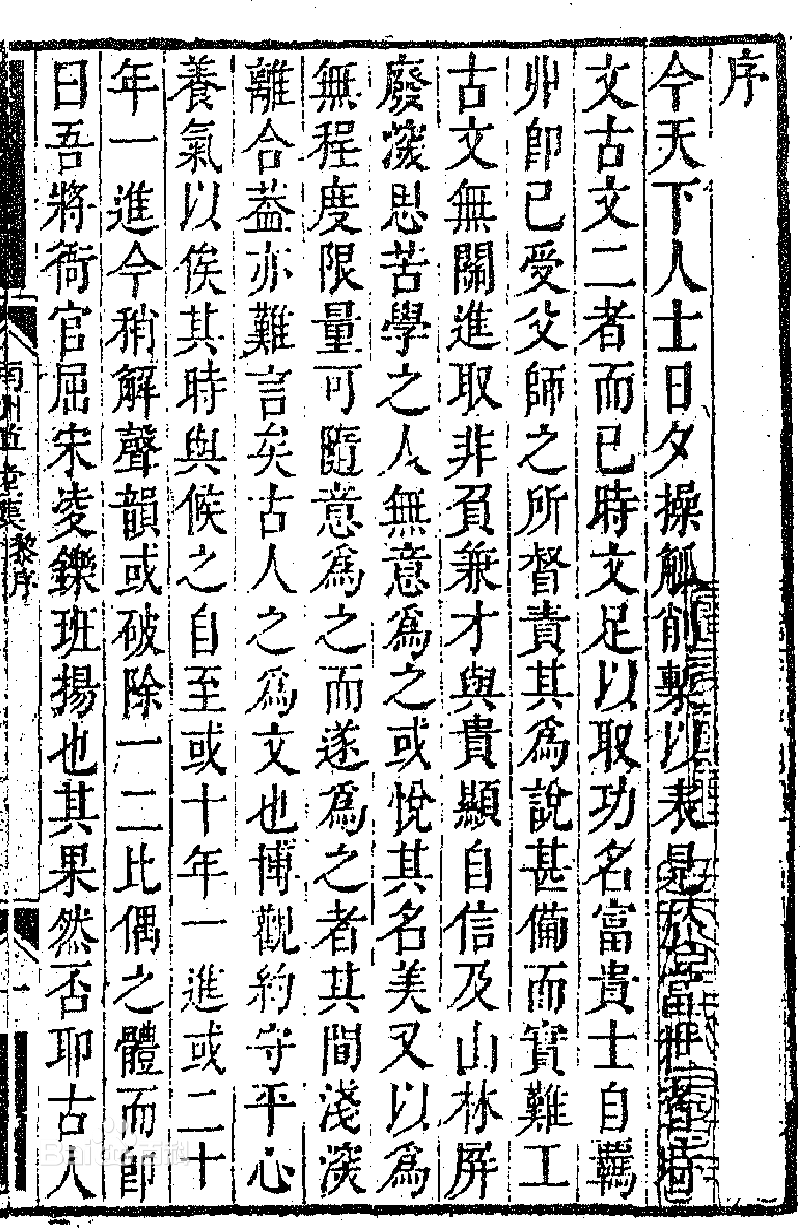 序
今天下人士日夕操觚削槧以表見於當世者時
文古文二者而已時文足以取功名富貴士自羈
丱卽已受父師之所督責其爲說甚備而實難工
古文無關進取非負兼才與貴顯自信及山林屛
廢深思苦學之人無意爲之或悅其名美又以爲
無程度限量可隨意爲之而遂爲之者其間淺深
離合葢亦難言矣古人之爲文也博觀約守平心
養氣以俟其時與候之自至或十年一進或二十
年一進今稍解聲韻或破除一二比偶之體而卽
曰吾將衙官屈宋凌鑠班揚也其果然否耶古人
集
黎序
一
Baidu百科